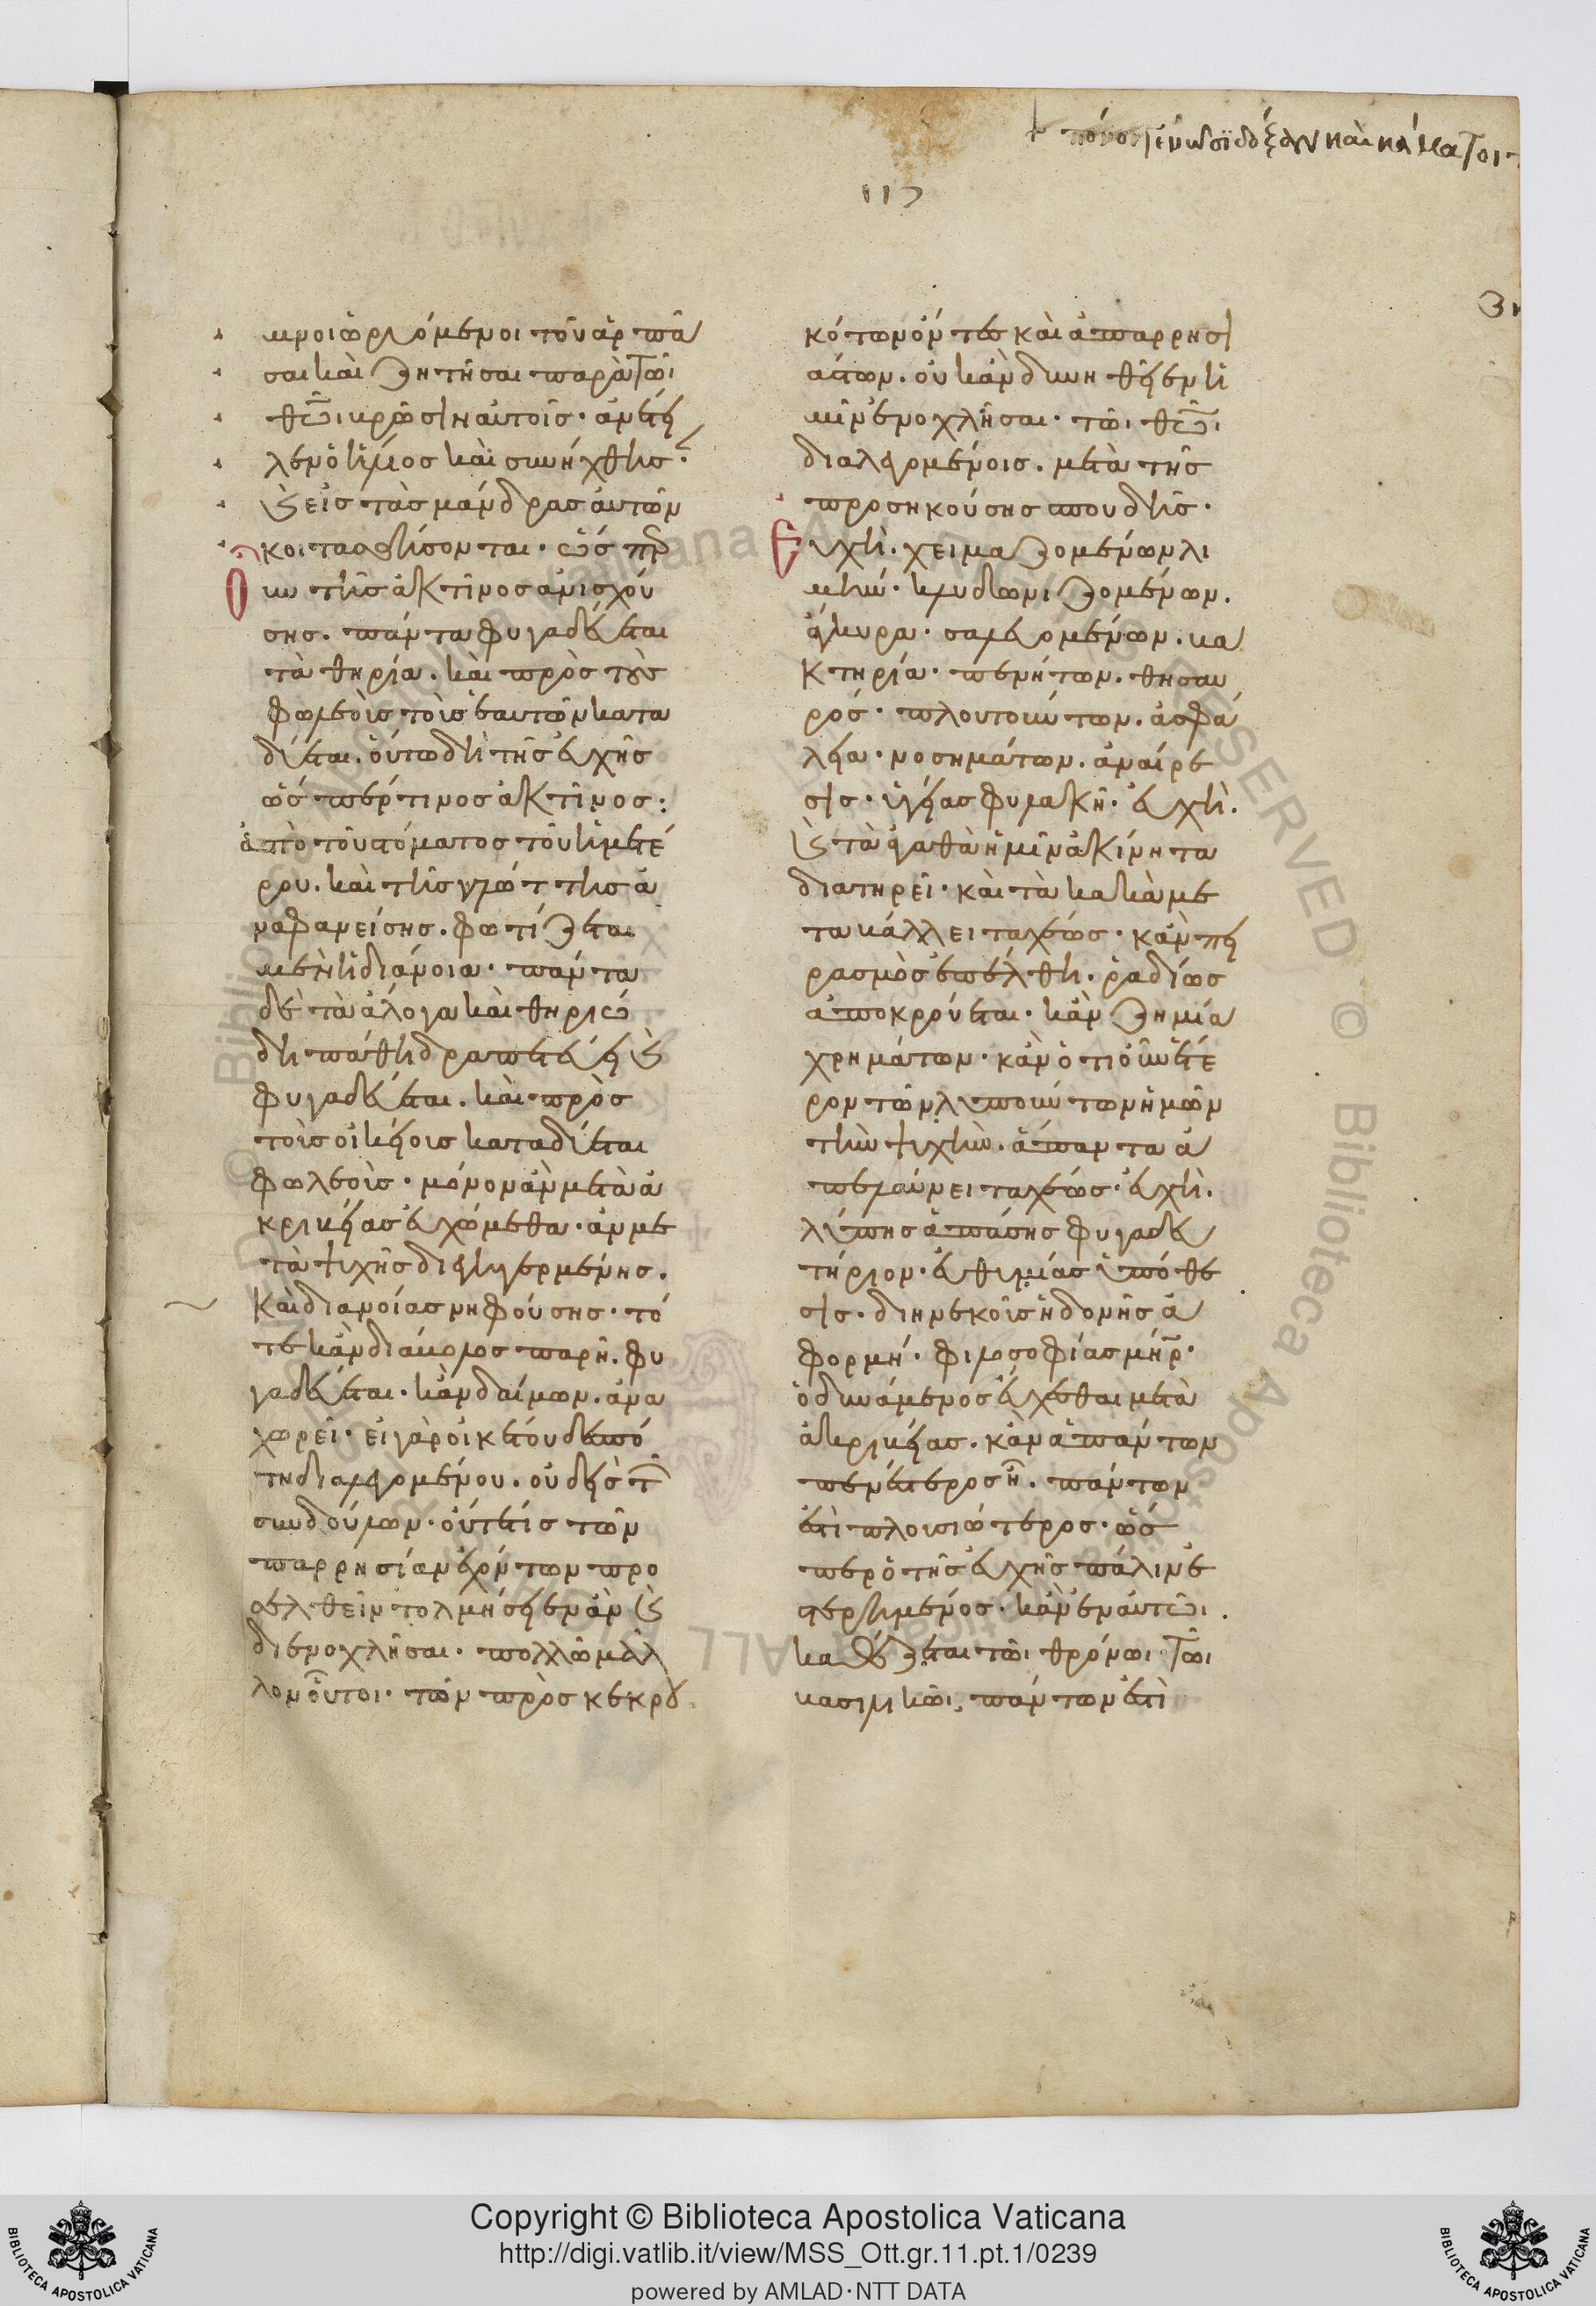 πόνος γεννᾶϊ δόξαν καὶ καμάτοι
μνοι ὠρυόμενοι τοῦ ἁρπά
σαι καὶ ζητῆσαι παρὰ τῶι
θεῶι βρῶσιν αὐτοῖς· ἀνέτει
λεν ὁ ἥλιος καὶ συνήχθησ·
καὶ εἰς τὰς μάνδρας αὐτῶν
κοιτασθήσονται· ὥσπερ
οὖν τῆς ἀκτῖνος ἀνισχού
σης. πάντα φυγαδεύεται
τὰ θηρία. καὶ πρὸς τοὺς
φωλεοὺς τοὺς ἑαυτῶν κατα
δύεται. οὕτω δὴ τῆς εὐχῆς
ὥσπερ τινος ἀκτῖνος:
ἀπὸ τοῦ στόματος τοῦ ἡμετέ
ρου. καὶ τῆς γλώττης ἀ
ναφανείσης. φωτίζεται
μὲν ἡ διάνοια· πάντα
δὲ τὰ ἄλογα καὶ θηριώ
δη πάθη δραπετεύει καὶ
φυγαδεύεται. καὶ πρὸς
τοὺς οἰκείους καταδύεται
φωλεοὺς· μόνον ἂν μετὰ ἀ
κριβείας εὐχώμεθα· ἂν με
τὰ ψυχῆς διεγηγερμένης.
καὶ διανοίας νηφούσης· τό
τε κἂν διάβολος παρῆ. φυ
γαδεύεται· κἂν δαίμων. ἀνα
χωρεῖ· εἰ γὰρ οἰκέτου δεσπό
τη διαλεγομένου. οὐδεὶς τῶν
συνδούλων· οὔτε τίς τῶν
παρρησίαν ἐχόντων προ
σελθεῖν τολμήσειεν ἂν καὶ
διενοχλῆσαι· πολλῶ μᾶλ
λον οὗτοι· τῶν προσκεκρου
κότων ὄντες καὶ ἀπαρρησι
άστων. οὐκ ἂν δυνηθεῖεν ἡ
μῖν ἐνοχλῆσαι· τῶι θεῶι
διαλεγομένοις. μετὰ τῆς
προσηκούσης σπουδῆς·
Εὐχὴ. χειμαζομένων λι
μήν· κλυδωνιζομένων.
ἄγκυρα· σαλευομένων. βα
κτηρία· πενήτων. θησαυ
ρός· πλουτούντων. ἀσφά
λεια· νοσημάτων. ἀναίρε
σις· ὑγείας φυλακή· εὐχὴ.
καὶ τὰ ἀγαθὰ ἡμῖν ἀκίνητα
διατηρεῖ· καὶ τὰ κακὰ με
ταβάλλει ταχέως· κἂν πει
ρασμὸς ἐπέλθη. ῥαδίως
ἀποκρούεται· κἂν ζημία
χρημάτων· κἂν ὁτιοῦν ἕτε
ρον τῶν λυπούντων ἡμῶν
τὴν ψυχὴν. ἅπαντα ἀ
πελαύνει ταχέως· εὐχὴ.
λύπης ἁπάσης φυγαδευ
τήριον· εὐθυμίας ὑπόθε
σις· διηνεκοῦς ἡδονῆς ἀ
φορμή· φιλοσοφίας μήτηρ·
ὁ δυνάμενος εὔχεσθαι μετὰ
ἀκριβείας. κἂν ἁπάντων
πενέστερος ἦ. πάντων
ἐστὶ πλουσιώτερος· ὥσ
περ ὁ τῆς εὐχῆς πάλιν ἐ
στερημένος· κἂν ἐν αὐτῶι
καθέζεται τῶι θρόνωι τῶι
βασιλικῶι, πάντων ἐστὶ
Copyright © Biblioteca Apostolica Vaticana
http://digi.vatlib.it/view/MSS_Ott.gr.11.pt.1/0239
powered by AMLAD·NTT DATA